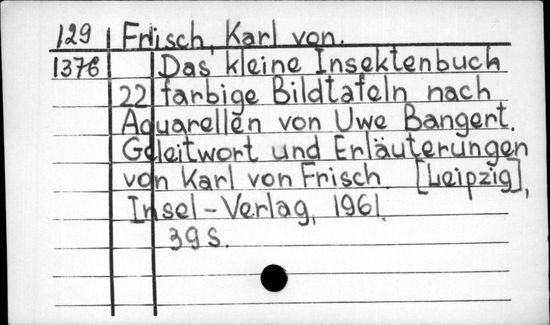 129 Frisch, Karl von.
1376 Das kleine Insektenbuch
22 farbige Bildtafeln nach
Aquarellen von Uwe Bangert.
Geleitwort und Erläuterungen
von Karl von Frisch. [Leipzig],
Insel-Verlag, 1961.
39 S.